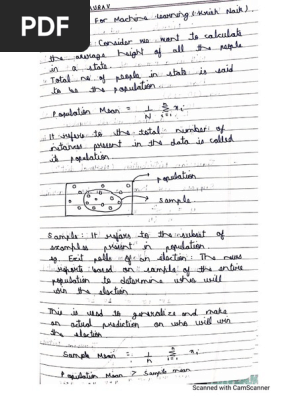 PDF
For Machine Learning (Krish Naik).
Consider we want to calculate
the average height of all the people
in a state.
Total no. of people in state is said
to be the population.
Population Mean = 1/N Σ i=1 xi
It refers to the total number of
instances present in the data is called
its population.
population
sample
Sample: It refers to the subset of
examples present in population
eg Exit polls of an election: The news
reports based on sample of the entire
population to determine who will
win the election
This is used to generalize and make
an actual prediction on who will win
the election
Sample Mean = 1/n Σ i=1 xi
Population Mean > Sample mean
Scanned with CamScanner